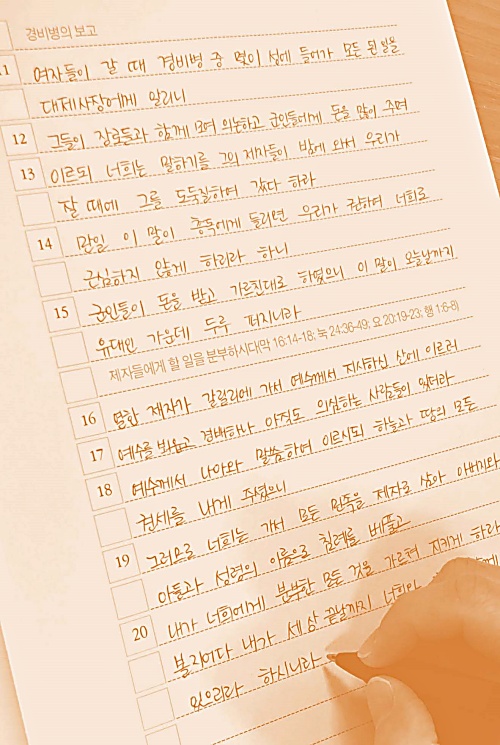 경비병의 보고
11 여자들이 갈 때 경비병 중 몇이 성에 들어가 모든 된 일을
대제사장에게 알리니
12 그들이 장로들과 함께 모여 의논하고 군인들에게 돈을 많이 주며
13 이르되 너희는 말하기를 그의 제자들이 밤에 와서 우리가
잘 때에 그를 도둑질하여 갔다 하라
14 만일 이 말이 총독에게 들리면 우리가 권하여 너희로
근심하지 않게 하리라 하니
15 군인들이 돈을 받고 가르친대로 하였으니 이 말이 오늘날까지
유대인 가운데 두루 퍼지니라
제자들에게 할 일을 분부하시다(막 16:14-18; 눅 24:36-49; 요 20:19-23; 행 1:6-8)
16 열한 제자가 갈릴리에 가서 예수께서 지시하신 산에 이르러
17 예수를 뵈옵고 경배하나 아직도 의심하는 사람들이 있더라
18 예수께서 나아와 말씀하여 이르시되 하늘과 땅의 모든
권세를 내게 주셨으니
19 그러므로 너희는 가서 모든 민족을 제자로 삼아 아버지와
아들과 성령의 이름으로 침례를 베풀고
20 내가 너희에게 분부한 모든 것을 가르쳐 지키게 하라
볼지어다 내가 세상 끝날까지 너희와
있으리라 하시니라